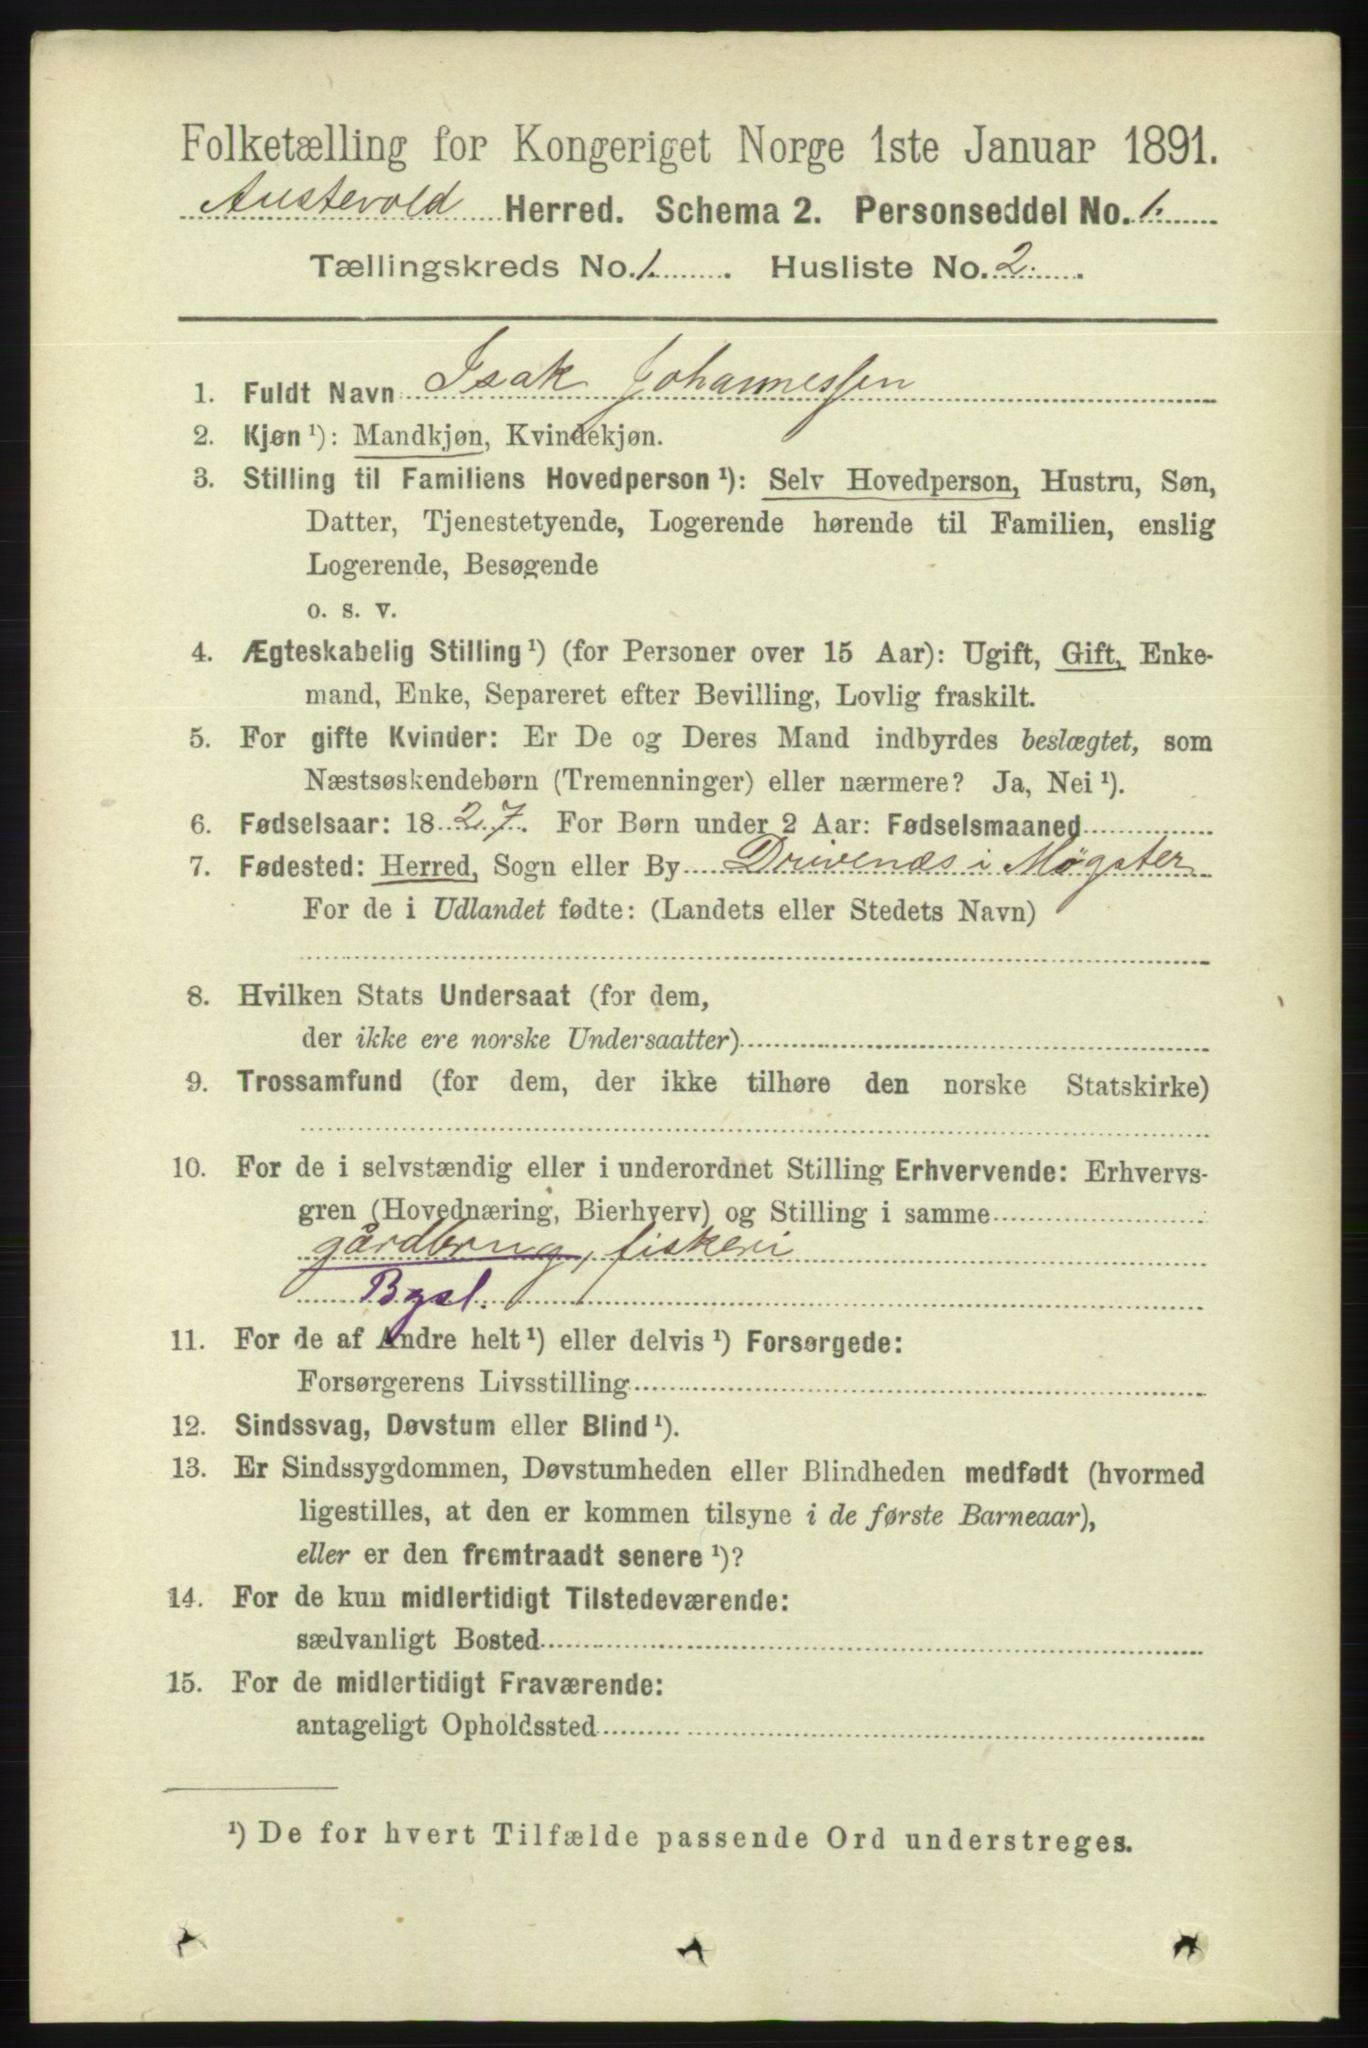 Folketælling for Kongeriget Norge 1ste Januar 1891.
Austevold Herred. Schema 2. Personseddel No. 1.
Tællingskreds No. 1. Husliste No. 2.
1. Fuldt Navn Isak Johannessen
2. Kjøn ¹): Mandkjøn, Kvindekjøn.
3. Stilling til Familiens Hovedperson ¹): Selv Hovedperson, Hustru, Søn,
Datter, Tjenestetyende, Logerende hørende til Familien, enslig
Logerende, Besøgende
o. s. v.
4. Ægteskabelig Stilling ¹) (for Personer over 15 Aar): Ugift, Gift, Enke-
mand, Enke, Separeret efter Bevilling, Lovlig fraskilt.
5. For gifte Kvinder: Er De og Deres Mand indbyrdes beslægtet, som
Næstsøskendebørn (Tremenninger) eller nærmere? Ja, Nei ¹).
6. Fødselsaar: 1827. For Børn under 2 Aar: Fødselsmaaned
7. Fødested: Herred, Sogn eller By Drivenæs i Møgster
For de i Udlandet fødte: (Landets eller Stedets Navn)
8. Hvilken Stats Undersaat (for dem,
der ikke ere norske Undersaatter)
9. Trossamfund (for dem, der ikke tilhøre den norske Statskirke)
10. For de i selvstændig eller i underordnet Stilling Erhvervende: Erhvervs-
gren (Hovednæring, Bierhverv) og Stilling i samme
gårdbrug, fiskeri
Bgsl.
11. For de af Andre helt ¹) eller delvis ¹) Forsørgede:
Forsørgerens Livsstilling
12. Sindssvag, Døvstum eller Blind ¹).
13. Er Sindssygdommen, Døvstumheden eller Blindheden medfødt (hvormed
ligestilles, at den er kommen tilsyne i de første Barneaar),
eller er den fremtraadt senere ¹)?
14. For de kun midlertidigt Tilstedeværende:
sædvanligt Bosted
15. For de midlertidigt Fraværende:
antageligt Opholdssted
¹) De for hvert Tilfælde passende Ord understreges.